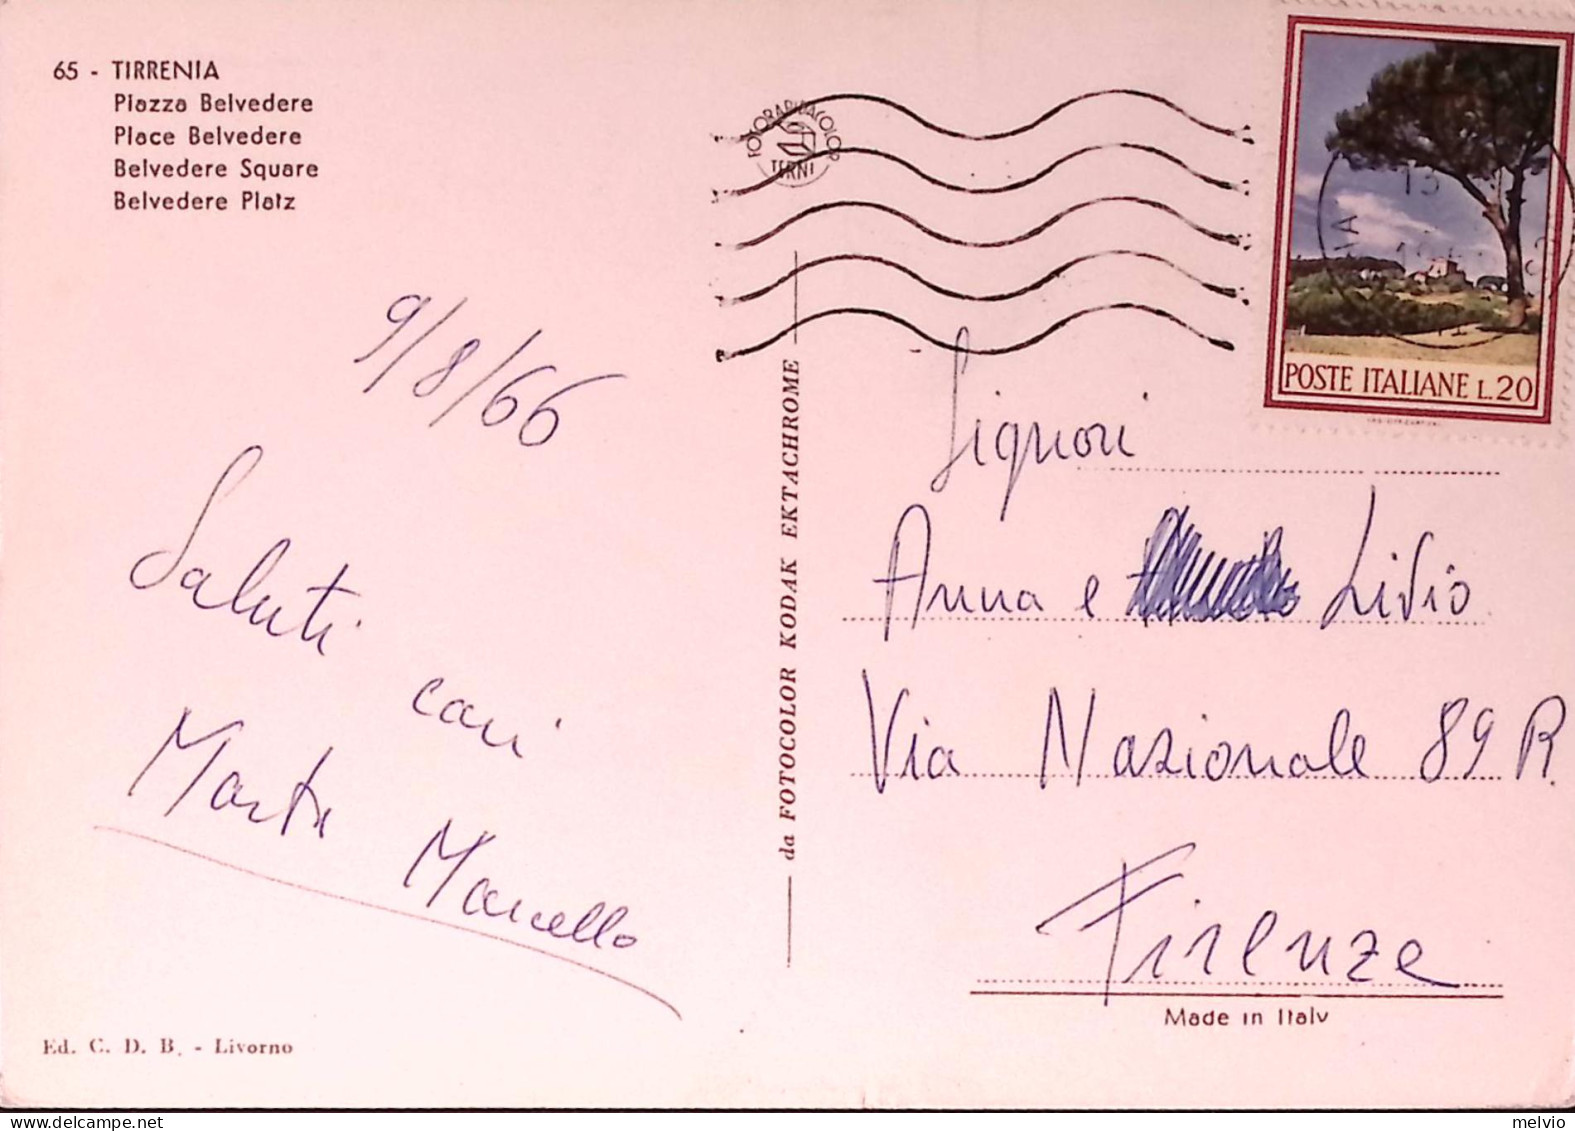 65 - TIRRENIA
Piazza Belvedere
Place Belvedere
Belvedere Square
Belvedere Platz
FOTORAPIDACOLOR
TERNI
POSTE ITALIANE L.20
9/8/66
Saluti cari
Marta Marcello
da FOTOCOLOR KODAK EKTACHROME
Signori
Anna e Livio
Via Nazionale 89 R.
Firenze
Made in Italy
Ed. C. D. B. - Livorno
melvio